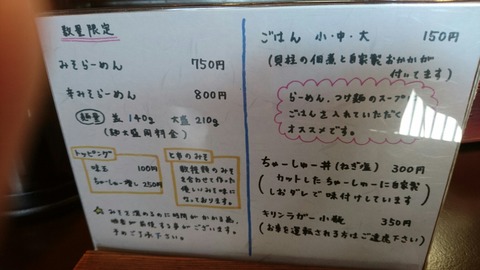 数量限定
みそらーめん 750円
辛みそらーめん 800円
麺量 並 140g 大盛 210g
(麺大盛同料金)
トッピング
味玉 100円
ちゃーしゅー増し 250円
数種類のみそ
を合わせて作った
優しいみそ味に
なっております。
☆ みそを溶めるのに時間がかかる為、
順番が前後する事がございます。
予めご了承下さい。
ごはん 小・中・大 150円
(貝柱の佃煮と自家製おかかが
付いてます)
らーめん、つけ麺のスープに
ごはんを入れていただく
オススメです。
ちゃーしゅー丼(ねぎ塩) 300円
(カットしたちゃーしゅーに自家製
しおダレで味付けしています
キリンラガー 小瓶 350円
(お車を運転される方はご遠慮下さい)